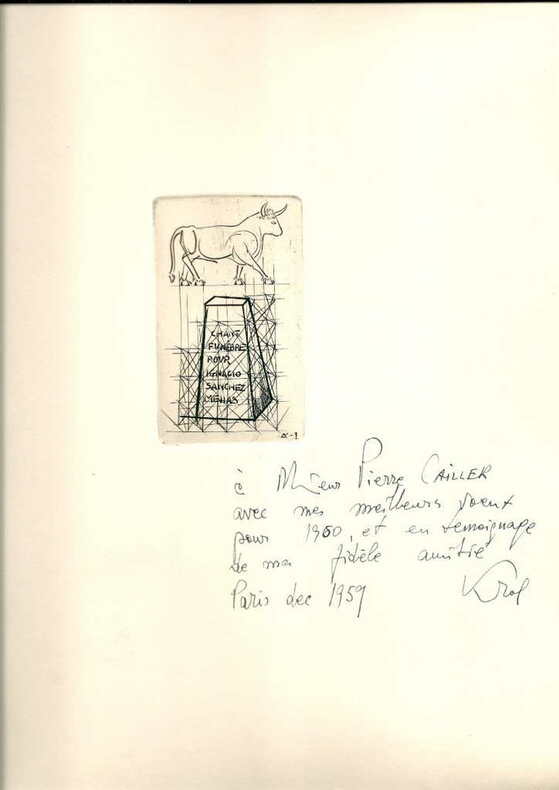 CHANT
FUNÈBRE
POUR
IGNACIO
SANCHEZ
MEJIAS
à Mr Pierre CAILLER
avec mes meilleurs voeux
pour 1960, et en temoignage
de ma fidèle amitié
Paris dec 1959 Krol